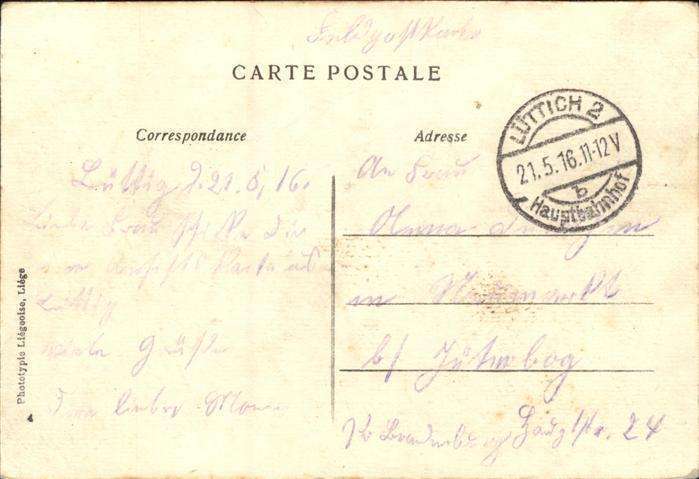 Feldpostkarte
CARTE POSTALE
Correspondance
Adresse
LÜTTICH 2
21.5.16.11-12V
b
Hauptbahnhof
Lüttig d. 21.5.16.
Liebe Frau schicke dir
Ansichtskarte aus
Lüttig
viele Grüße
dein lieber Mann
An Frau
Anna
in
b/ Jüterbog
Brandenburg Hauptstr. 24
Phototypie Liégeoise, Liége